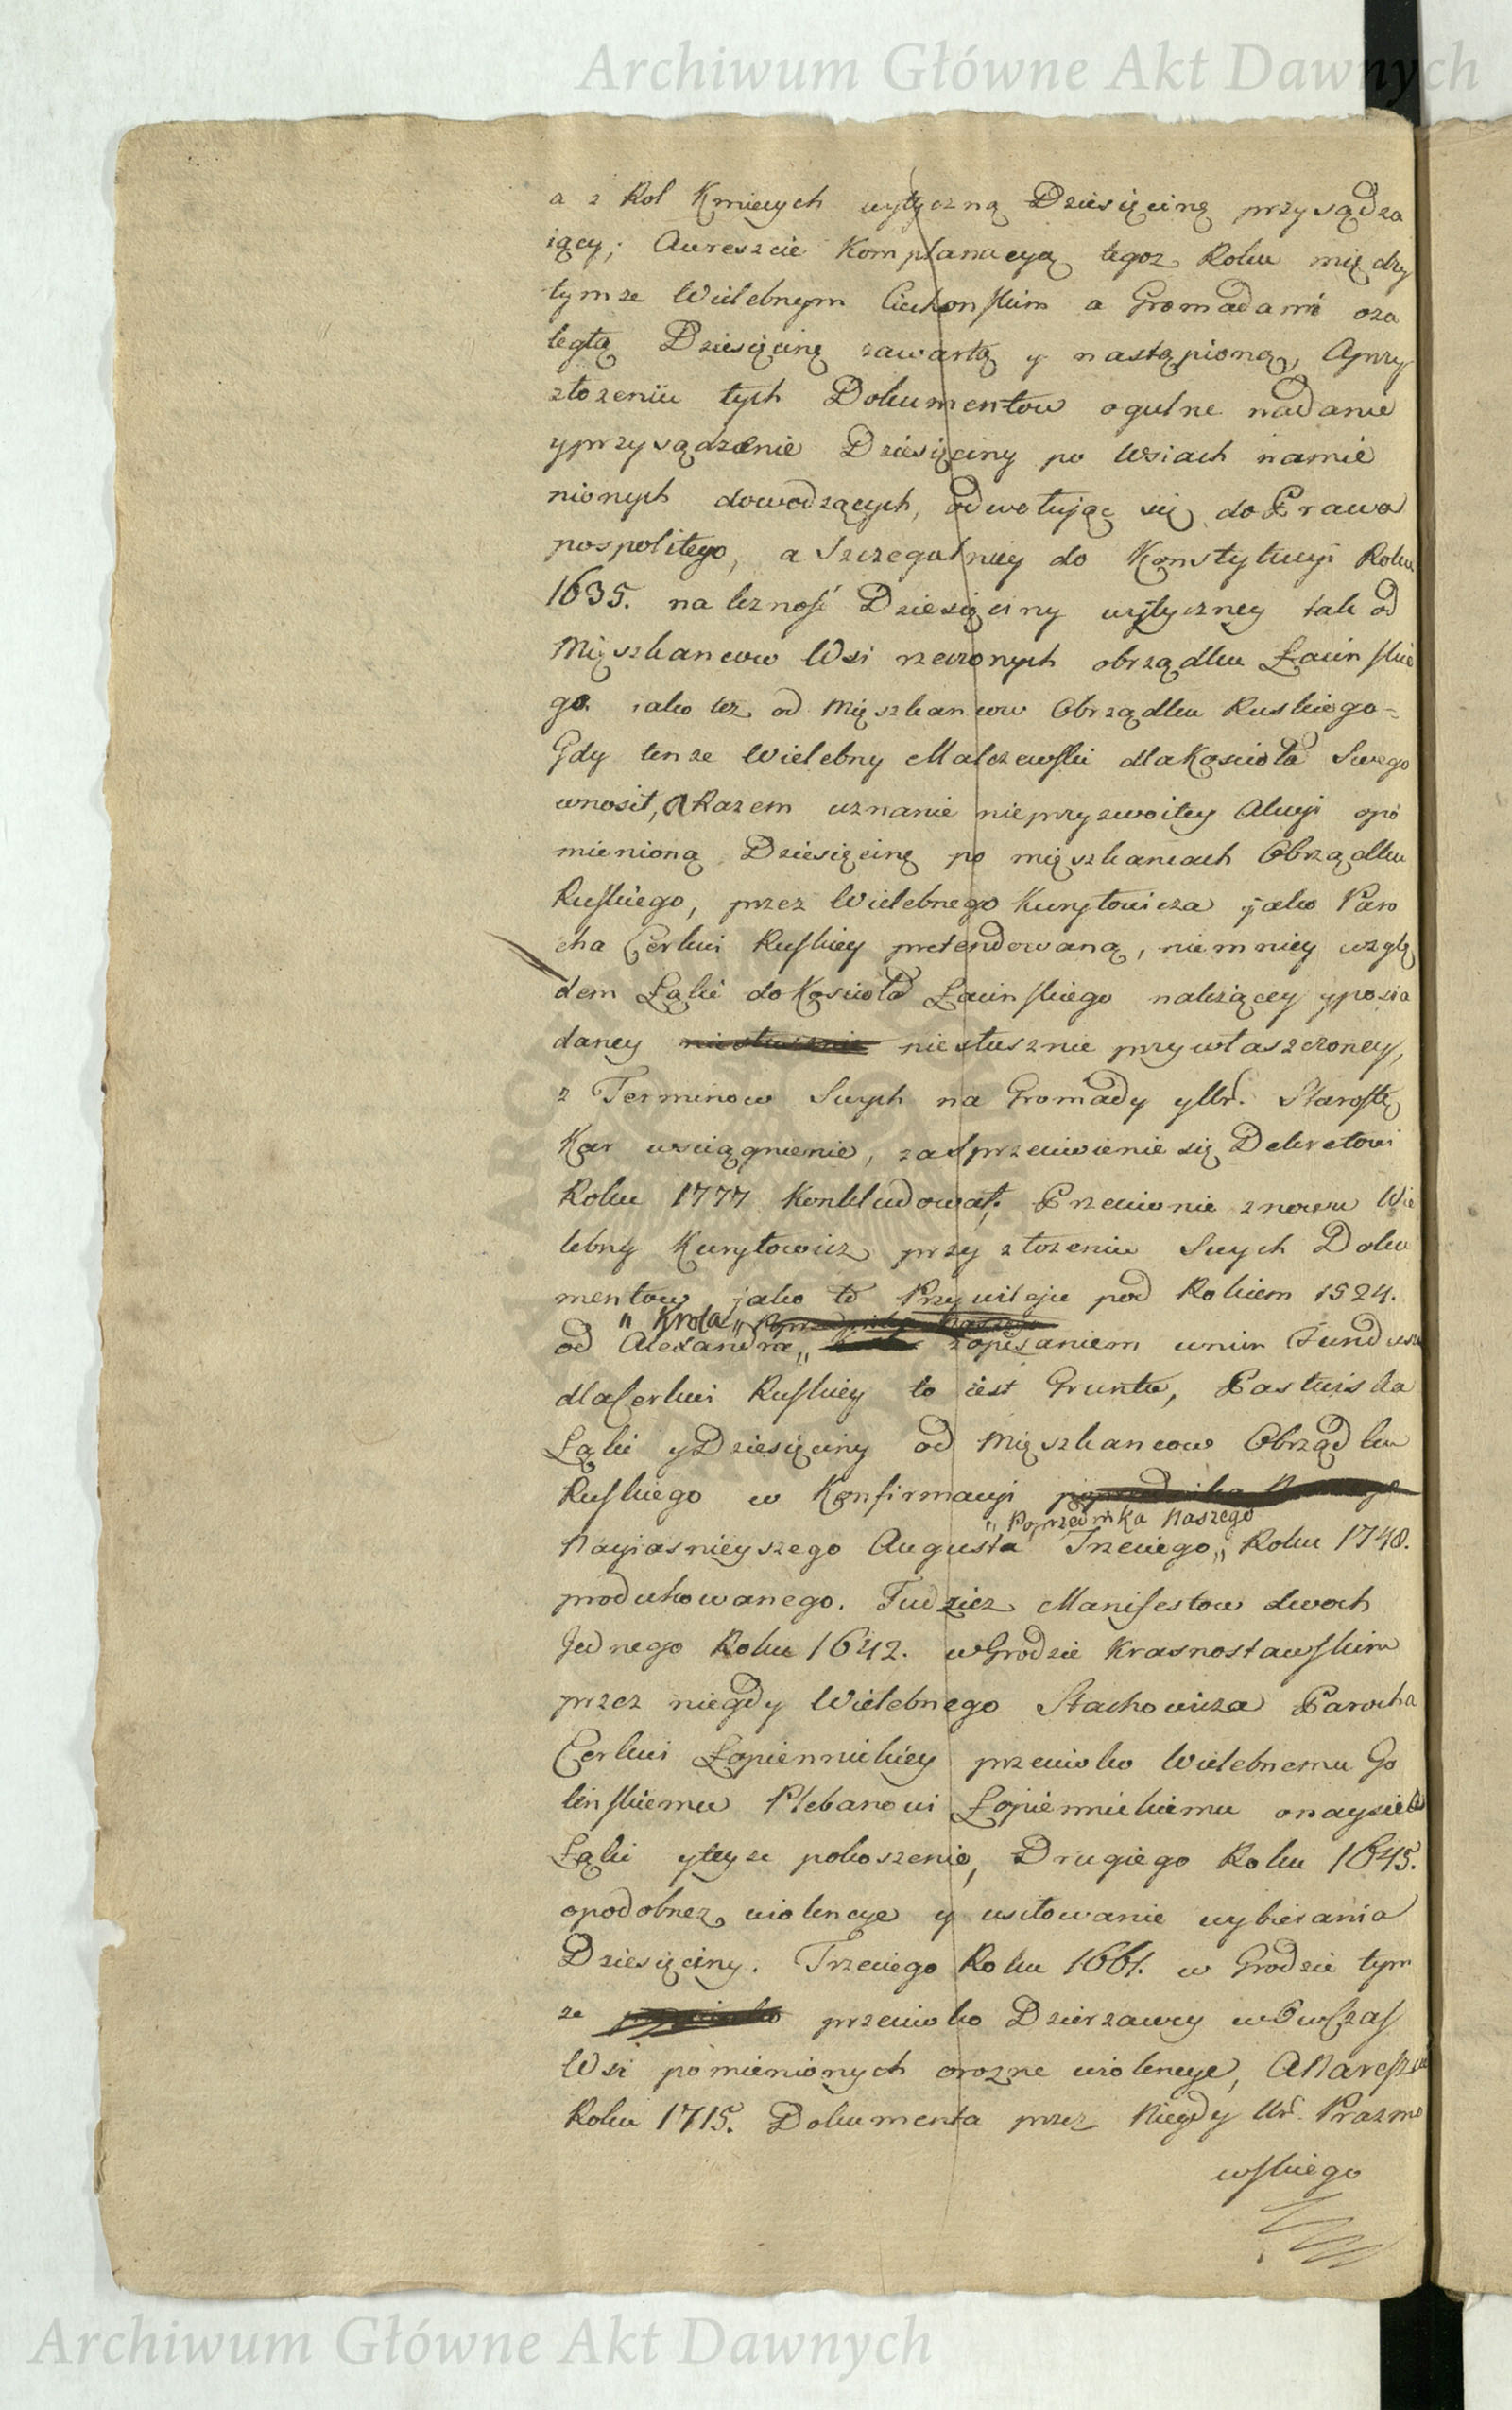 Archiwum Główne Akt Dawnych
a z Rol Kmiecych wytyczną Dziesięcinę przysądza
iący; Awreszcie Komplanacyą tegoz Roku między
tymze Wielebnym Ciechonskim a Gromadami oza
ległą Dziesięcinę zawartą y nastąpioną, Aprzy
złozeniu tych Dokumentow ogulne nadanie
yprzysądzenie Dziesięciny po Wsiach namie
nionych dowodzących, odwołując się do Prawa
pospolitego, a Szczegulniey do Konstytucyi Roku
1635. nalezność Dziesięciny wytyczney tak od
Mięszkancow Wsi rzeczonych obrządku Łacinskie
go. iako tez od Mięszkancow Obrządku Ruskiego=
Gdy tenze Wielebny Malczewski dla Kościoła Swego
wnosił, a Razem uznanie nieprzyzwoitey Akcyi opo
mienioną Dziesięcinę po mięszkancach Obrządku
Ruskiego, przez Wielebnego Kuryłowicza jako Paro
cha Cerkwi Ruskiey pretendowaną, niemniey wzglę
dem Łąki do Kościoła Łacinskiego nalezącey yposia
daney niesłusznie niesłusznie przywłaszczoney,
z Terminow Swych na Gromady yUr. Starostę
Kar wsciągnienie, za Sprzeciwienie się Dekretowi
Roku 1777 Konkludował; Przeciwnie znowu Wie
lebny Kuryłowicz przy złozeniu Swych Doku
mentow jako to Przywileju pod Rokiem 1524.
" Krola " Poprzednika Naszego
od Alexandra " zapisaniem wnim Fundusu
dla Cerkwi Ruskiey to iest Gruntu, Pastwiska
Łąki y Dziesięciny od Mięszkancow Obrządku
Ruskiego w Konfirmacyi poprzednika Naszego
" Poprzednika Naszego
Nayiasnieyszego Augusta Trzeciego " Roku 1748.
produkowanego. Tudziez Manifestow dwoch
Jednego Roku 1642. w Grodzie Krasnostawskim
przez niegdy Wielebnego Stachowicza Parocha
Cerkwi Łopiennickiey przeciwko Wielebnemu Go
linskiemu Plebanowi Łopiennickiemu onayscie
Łąki yteyze pokoszenie, Drugiego Roku 1645.
opodobnez wiolencye y usiłowanie wybierania
Dziesięciny. Trzeciego Roku 1661. w Grodzie tym
ze przeciwko Dzierzawcy wowczas
Wsi pomienionych orozne wiolencye, A Nareszcie
Roku 1715. Dokumenta przez Niegdy Ur. Prazmo
wskiego
Archiwum Główne Akt Dawnych